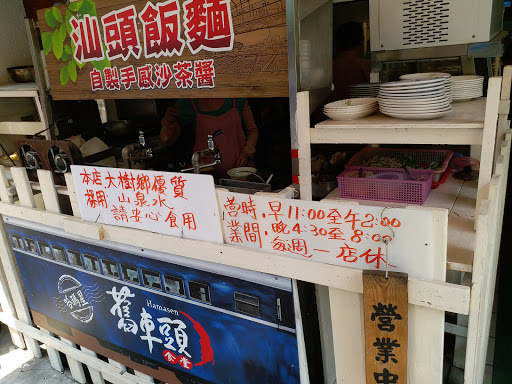 汕頭飯麵
自製手感沙茶醬
本店大樹鄉優質
採用山泉水
請安心食用
營時.早11:00至午2:00
業間.晚4:30至8:00
每週一店休
Hamasen
舊車頭
食堂
營業中